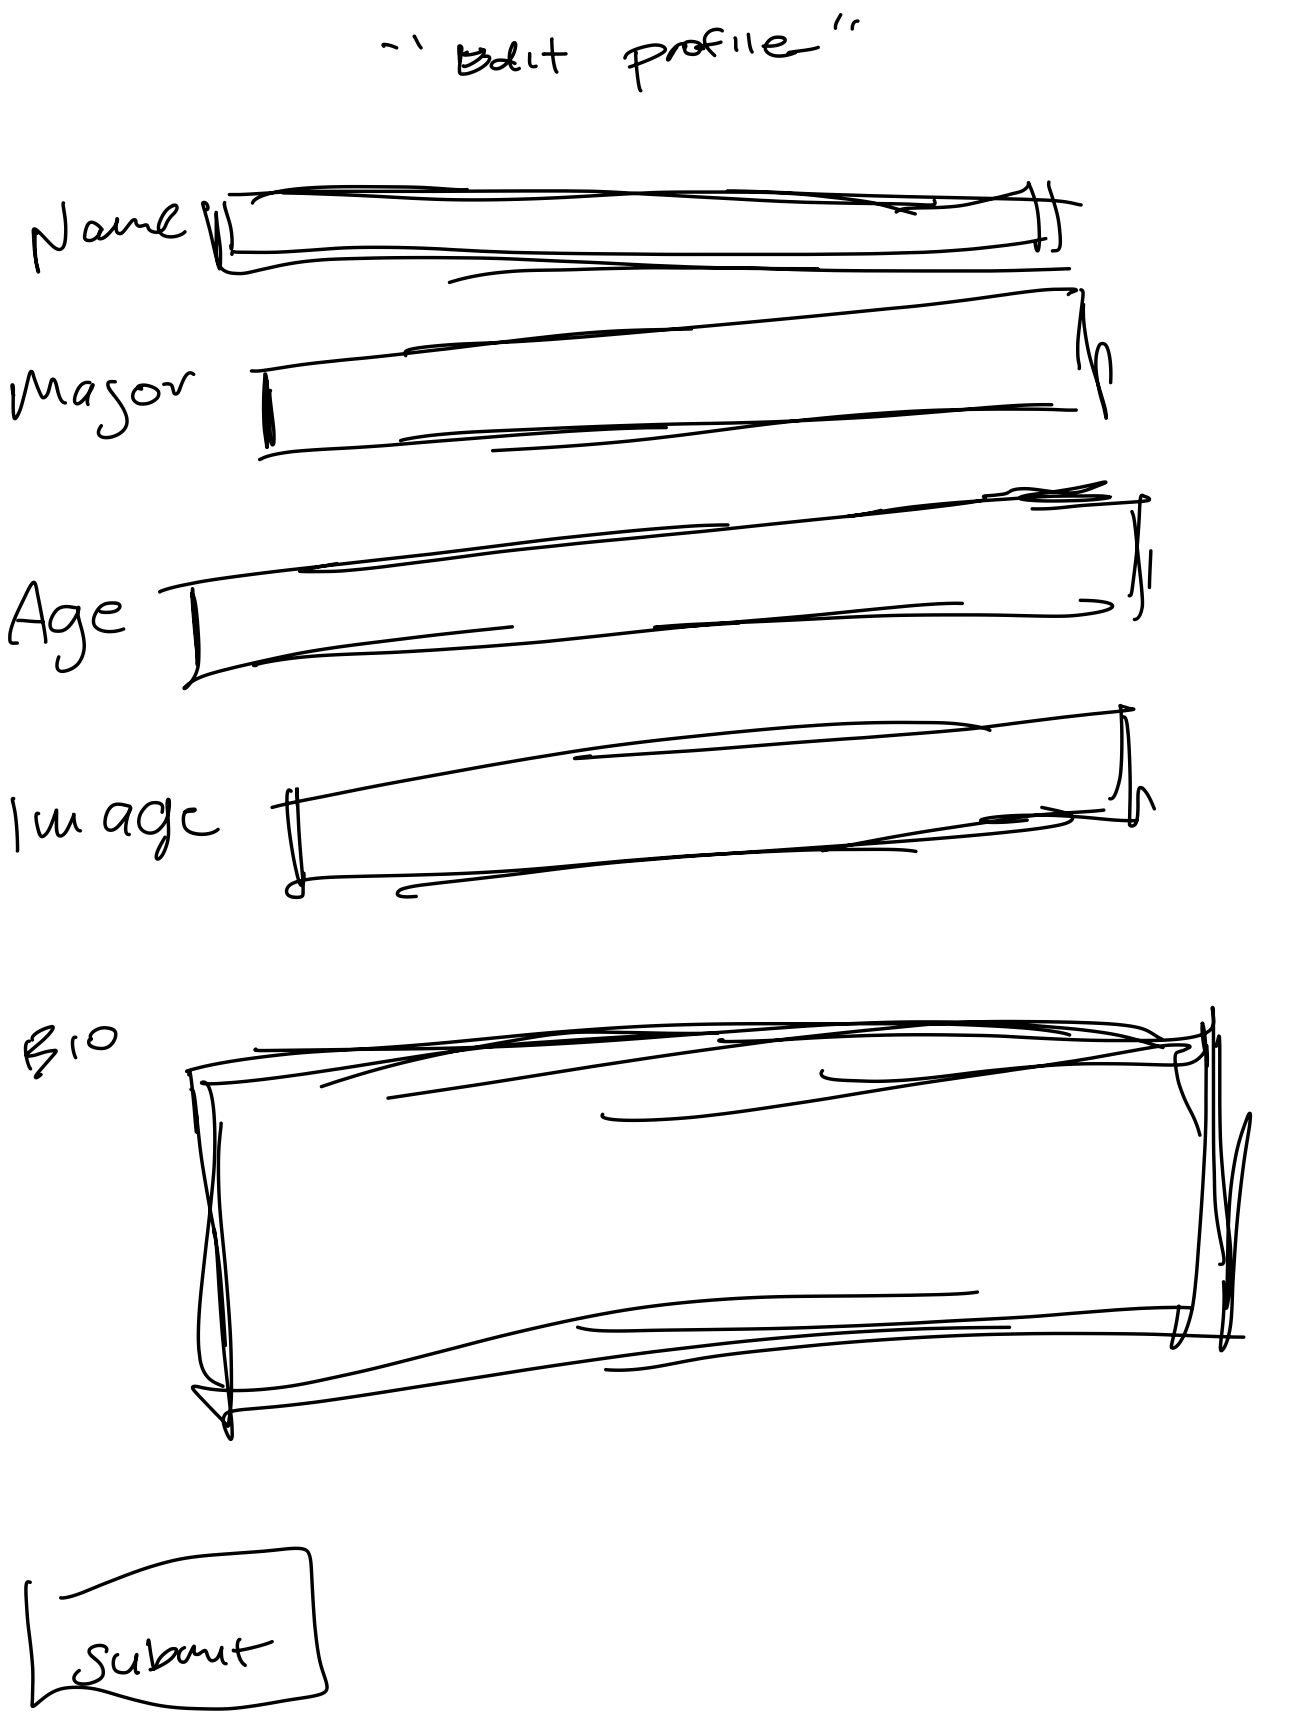 "Edit profile"
Name
Major
Age
Image
Bio
Submit